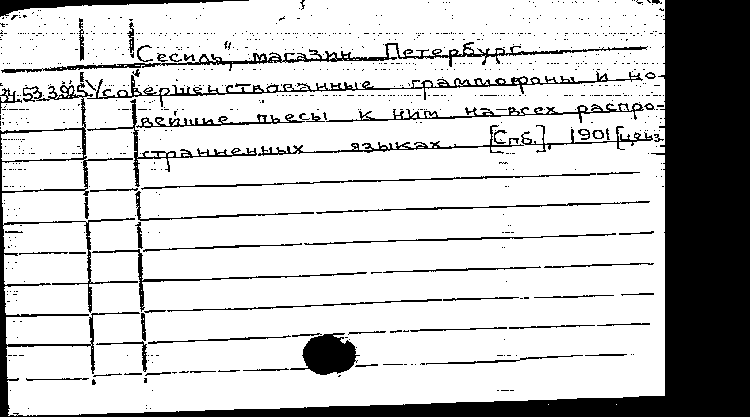 "Сесиль", магазин Петербург
34.53.3.925. Усовершенствованные граммофоны и но-
вейшие пьесы к ним на всех распро-
страненных языках. [Спб.], 1901 [ценз.